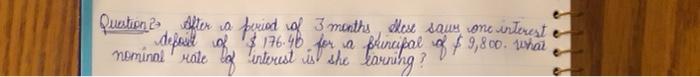 Question 2 After a period of 3 months, Alese saw one interest
deposit of $ 176.40 for a principal of $ 9,800. What
nominal rate of interest is she earning?